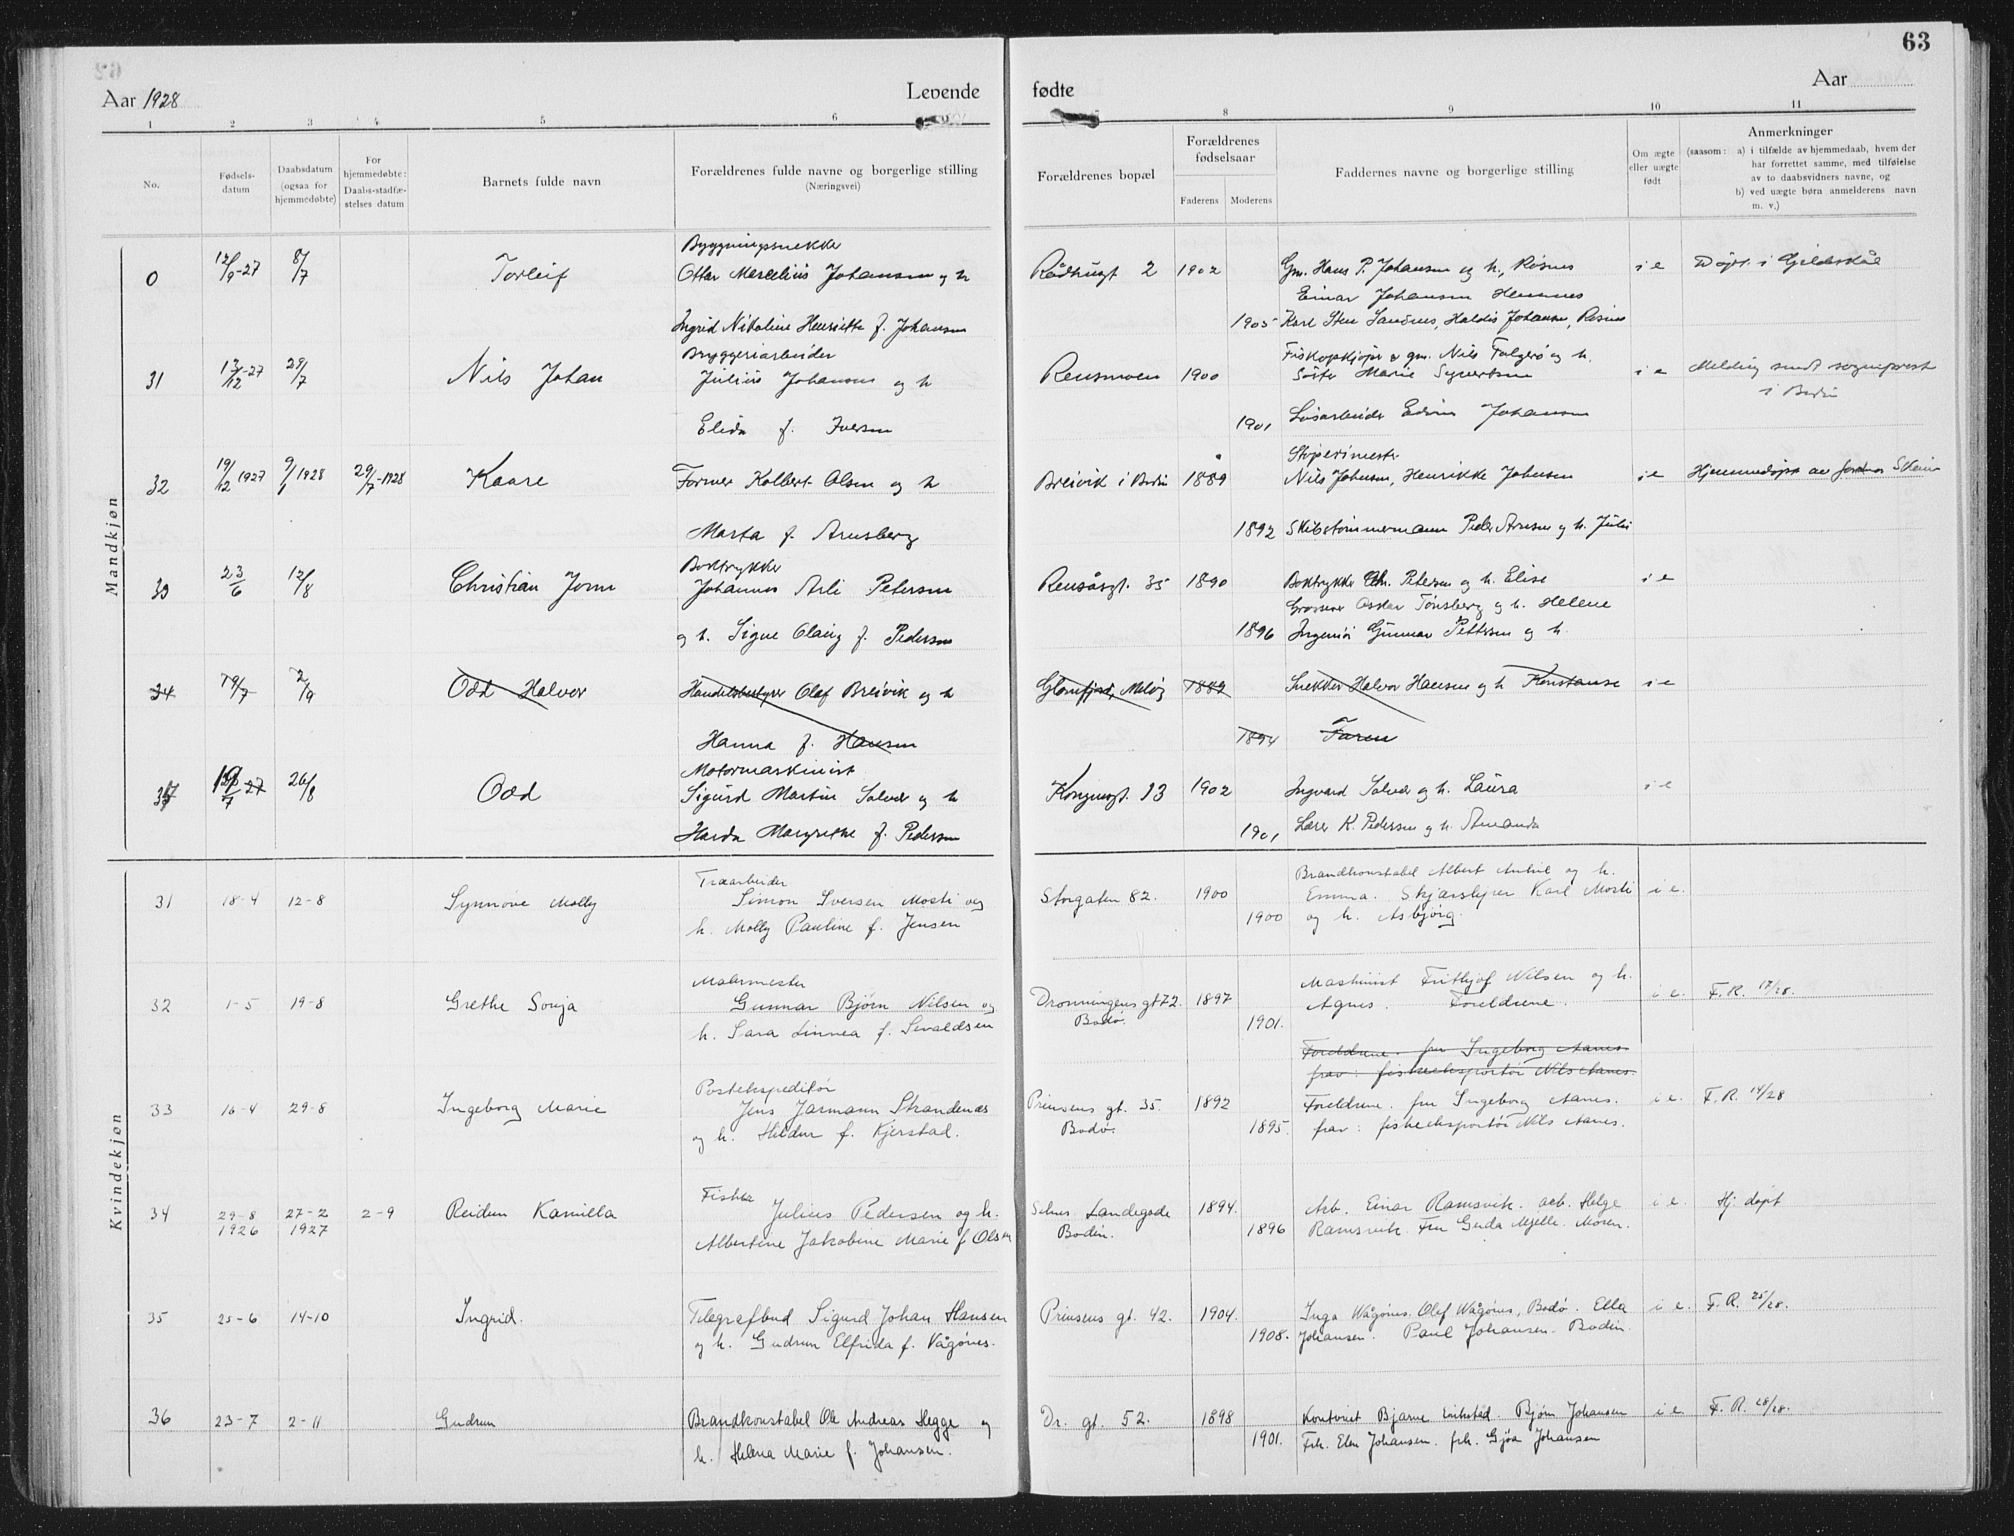 63
Aar 1928
Levende
fødte
Aar
1 2 3 4 5 6
8 9 10 11
No.
Fødsels-
datum
Daabsdatum
(ogsaa for
hjemmedøbte)
For
hjemmedøbte:
Daabs-stadfæ-
stelses datum
Barnets fulde navn
Forældrenes fulde navne og borgerlige stilling
(Næringsvei)
Forældrenes bopæl
Forældrenes
fødselsaar
Faderens Moderens
Faddernes navne og borgerlige stilling
Om ægte
eller uægte
født
Anmerkninger
(saasom: a) i tilfælde av hjemmedaab, hvem der
har forrettet samme, med tilføielse
av to daabsvidners navne, og
b) ved uægte børn anmelderens navn
m. v.)
Mandkjøn
0 12/9-27 8/7 Torleif
Byggningssnekker
Ottar Marcelius Johansen og h
Ingrid Nikoline Henriette f. Johansen
Rådhusgt 2 1902
1905
Gm. Hans P. Johansen og h., Risnes
Einar Johansen Hemnes
Karl Sten Sandnes, Haldis Johansen, Risnes
i e Døpt i Gildeskål
31 13/12-27 29/7 Nils Johan
Bryggeriarbeider
Julius Johansen og h
Elida f. Iversen
Rensmoen 1900
1901
Fiskeopkjøper & gm. Nils Falgerø og h.
Søster Marie Syvertsen
Løsarbeider Edvin Johansen
i e Melding sendt sogneprest
i Bodin
32 19/12 1927 9/1 1928 29/7-1928 Kaare
Former Kolbert Olsen og h
Marta f. Arnsberg
Breivik i Bodin 1889
1892
Støperimester
Nils Johnsen, Henrikke Johnsen
Skibstømmermann Peder Arnesen og h. Julie
i e Hjemmedøpt av jordmor
33 23/6 12/8 Christian Jorm
Boktrykker
Johannes Arli Petersen
og h. Signe Olaug f. Pedersen
Rensåsgt. 35 1890
1896
Boktrykker Chr. Petersen og h. Elise
Grosserer Oskar Tønsberg og h. Helene
Ingeniør Gunnar Pettersen og h.
i e
34 19/7 2/9 Odd Halvor
Handelsbestyrer Olaf Breivik og h
Hanna f. Hansen
Glomfjord, Meløy 1889
1894
Snekker Halvor Hansen og h Konstanse
Faren
i e
37 19/7 27 26/8 Odd
Motormaskinist
Sigurd Martin Solvær og h
Harda Margrethe f. Pedersen
Kongensgt. 13 1902
1901
Ingvard Solvær og h. Laura
Lærer K. Pedersen og h. Amanda
i e
Kvindekjøn
31 18-4 12-8 Synnøve Molly
Træarbeider
Simon Iversen Mosti og
h. Molly Pauline f. Jensen
Storgaten 82. 1900
1900
Brandkonstabel Albert Antil og h.
Emma. Skjærsliper Karl Mosti
og h. Asbjørg.
i e.
32 1-5 19-8 Grethe Sonja
Malermester
Gunnar Bjørn Nilsen og
h. Sara Linnea f. Sivaldsen
Dronningens gt 72.
Bodø.
1897
1901.
Maskinist Fritjof Nilsen og h.
Agnes. Foreldrene.
i e. F. R. 17/28.
Foreldrene. fru Ingeborg Aanes.
frav: fiskeeksportør Nils Aanes.
33 16-4 29-8 Ingeborg Marie
Postekspeditør
Jens Jarmann Strandenæs
og h. Hildur f. Kjerstad.
Prinsens gt. 35.
Bodø.
1892
1895.
Foreldrene. fru Ingeborg Aanes.
frav: fiskeeksportør Nils Aanes.
i e. F. R. 14/28
34 29-8 27-2 2-9 Reidun Kamilla
1926 1927
Fisker
Julius Pedersen og h.
Albertine Jakobine Marie f Olsen
Selnes Landegode
Bodin.
1894.
1896
Arb. Einar Ramsvik. arb. Helge
Ramsvik. Fru Gerda Mjelle. Moren.
i e. Hj. døpt
35 25-6 14-10 Ingrid.
Telegrafbud Sigurd Johan Hansen
og h. Gudrun Elfrida f. Vågønes.
Prinsens gt. 42. 1904.
1908.
Inga Vågønes. Olef Vågønes, Bodø. Ella
Johansen. Paul Johansen. Bodin.
i e. F. R. 25/28.
36 23-7 2-11 Gudrun
Brandkonstabel Ole Andreas Hegge og
h. Helena Marie f. Johansen.
Dr. gt. 52. 1898
1901.
Kontorist Bjarne Eriksted. Bjørn Johansen
Frk. Elen Johansen. frk. Gjøa Johansen
i e. F. R. 28/28.